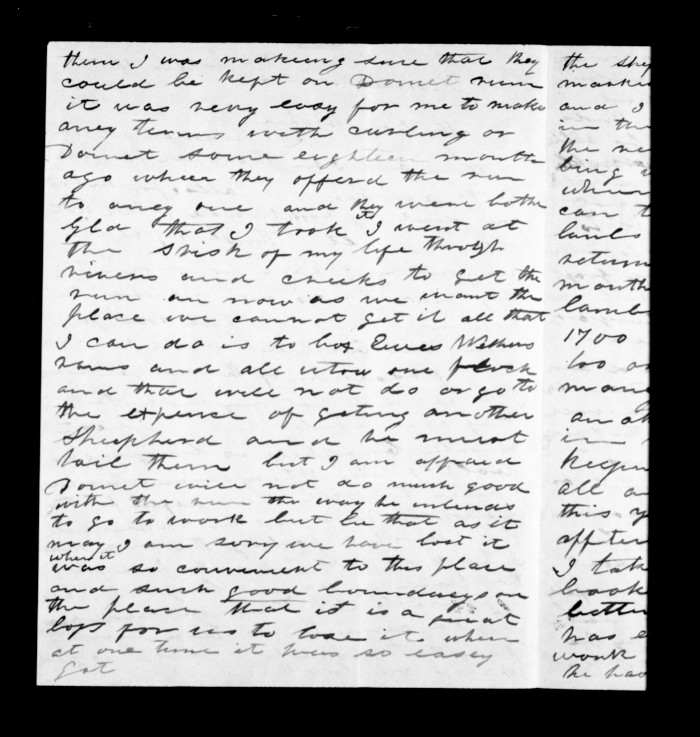 them I was makeing sure that they
could be kept on Domet run
it was very easy for me to make
aney terms with curling or
Domet some eighteen month
ago wheer they offerd the run
to aney one and they were bothe
Gld that I took it I went at
the Srisk of my life through
rivers and creeks to get the
run an now as we want the
place we cannot get it all that
I can do is to box Ewes Wethers
rams and all into one flock
and that will not do or go to
the expence of geting another
Sheepherd and he must
tail them but I am affraid
Domet will not do much good
with the run the way he intends
to go to work but be that as it
may I am sory we have lost it
when it
was so convenient to this place
and such good boundarys on
the place that it is a great
loss for us to lose it when
at one time it was so easey
got
the
and I
in the
the
being
when
can t
lambs
return
month
lamb
1700
too
many
in
all
this y
affter
I tak
book
bettr
has e
work
he had